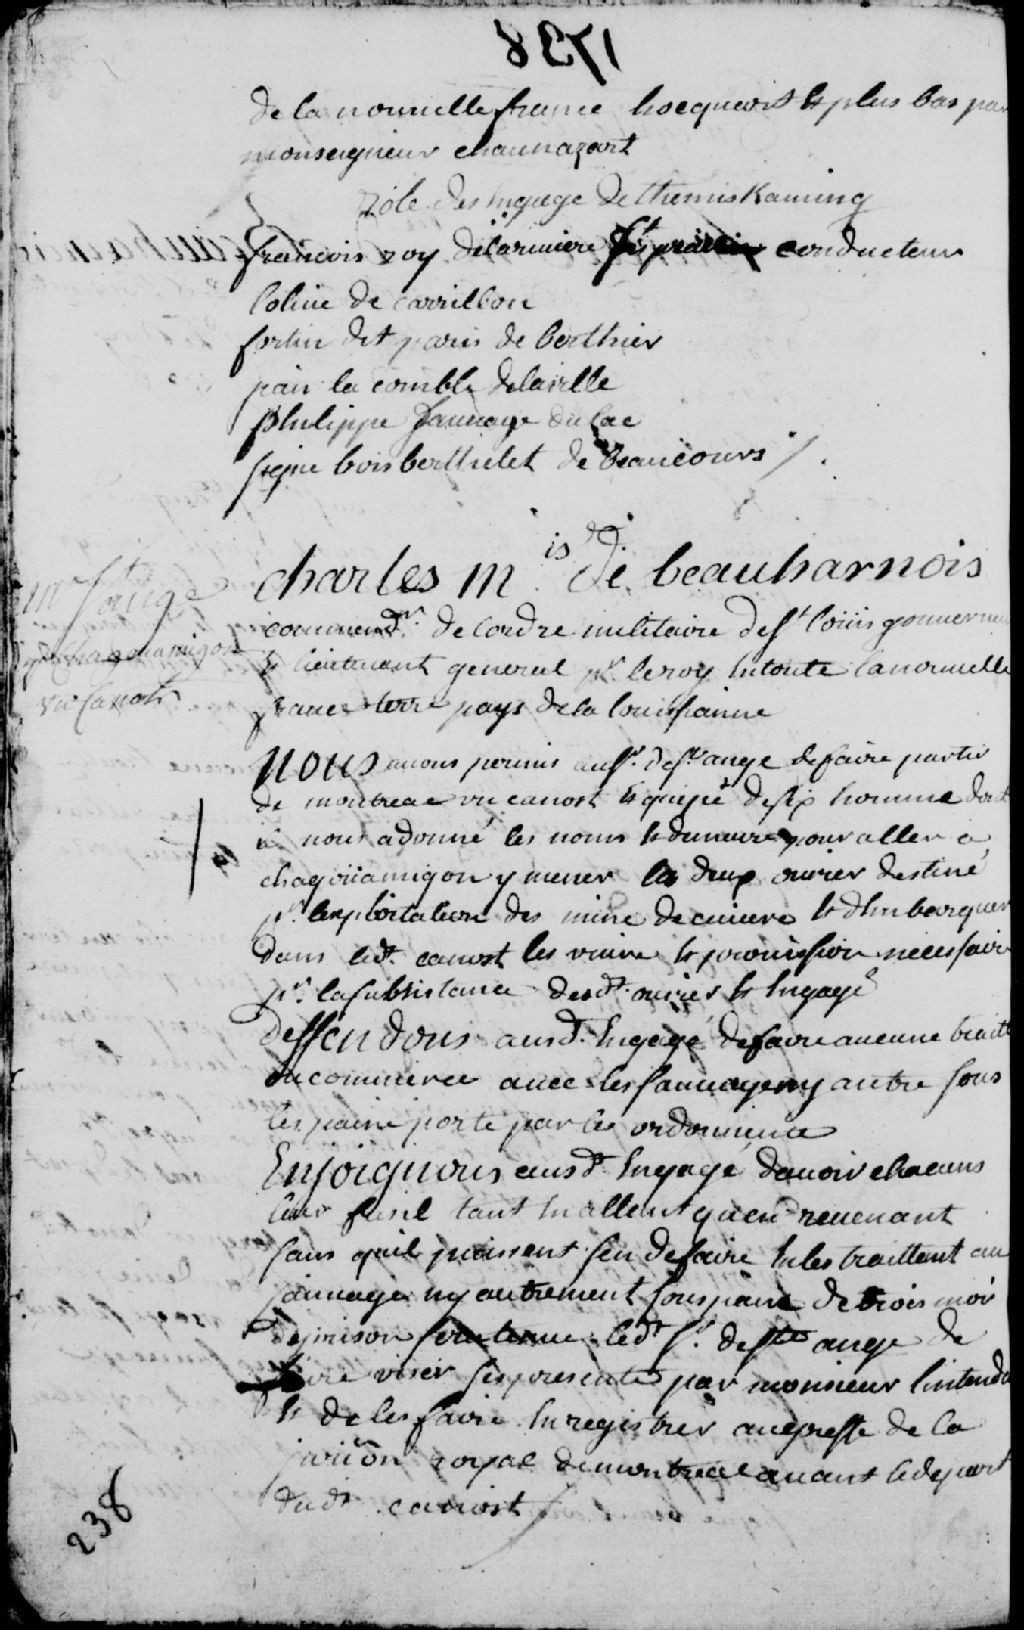 1738
de la nouvelle france hocquart & plus bas par
monseigneur chaunazart
Role des Engage de themiskaming
francois roy de carriere conducteur
Coline de carrillon
fortin dit paris de berthier
pair la comble delaville
philippe Sauuage du lac
signe bois berthelet de beaucours /.
charles m.is de beauharnois
command.r de lordre militaire de s.t louiis gouuerneur
& lieutenant general p.r le roy En toute la nouuelle
france terre pays de la louissianne
mr st ange
p.r chagouamigon
vn canot
nous auons permis au s.r de s.t ange de faire partir
de montreal vn canost Equipé de six homme dont
il nous a donné les noms & demeure pour aller a
chagoüamigon y mener les deux ouurier destiné
p.r lexploitation des mine de cuiure & dEmbarquer
dans led.t canost les viure & prouission necessaire
p.r la subsistance desd.t ouurier & Engagé
deffendons ausd.t Engagé de faire aucune traitte
ou commerce auec les sauuage ny autre sous
les paine porté par les ordonnance
Enjoignons ausd.t Engagé dauoir chacuns
leur fusil tant En allent quen reuenant
sans quil puissent sen defaire En les traittent au
sauuage ny autrement sous paine de trois moi
de prison sera tenue led.t s.r de ste ange de
faire viser ses presente par monsieur lintenda
& de les faire Enregistrer au greffe de la
juriōn royal de montreal auant le depart
dud.t canost /
238